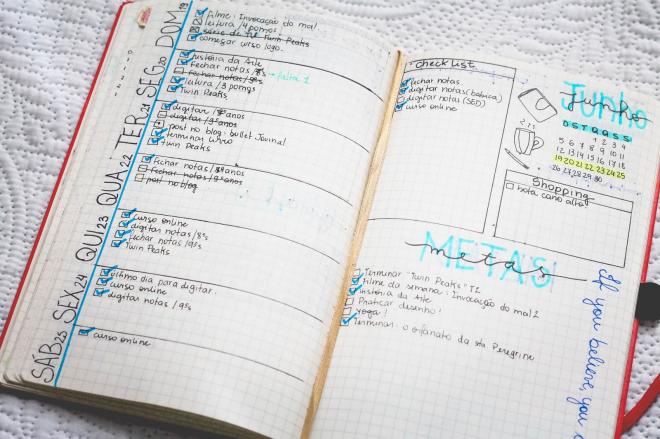 DOM 19
filme: Invocação do mal
leitura / 4 pomos
série de TV Twin Peaks
começar curso logo.
SEG 20
história da Arte
fechar notas / 8ºs → falta 1
fechar notas / 9ºs
leitura / 3 pomos
Twin Peaks
TER 21
digitar / 8º anos
digitar / 9º anos
post no blog: bullet Journal
terminar livro
twin peaks
QUA 22
fechar notas / 8º anos
fechar notas / 9º anos
post no blog
QUI 23
curso online
digitar notas / 8ºs
fechar notas / 9ºs
Twin Peaks
SEX 24
último dia para digitar.
curso online
digitar notas / 9ºs
SÁB 25
curso online
check list
fechar notas
digitar notas
digitar notas (SED)
curso online
Junho
junho
D S T Q Q S S
1 2 3 4
5 6 7 8 9 10 11
12 13 14 15 16 17 18
19 20 21 22 23 24 25
26 27 28 29 30
Shopping
bota cano alto!
METAS
metas
Terminar "Twin Peaks" T2
Filme da semana: Invocação do mal 2
História da Arte
Praticar desenho!
yoga!
Terminar: o orfanato da sta Peregrine
If you believe, you